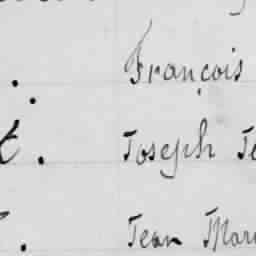 . François
t. Joseph
. Jean